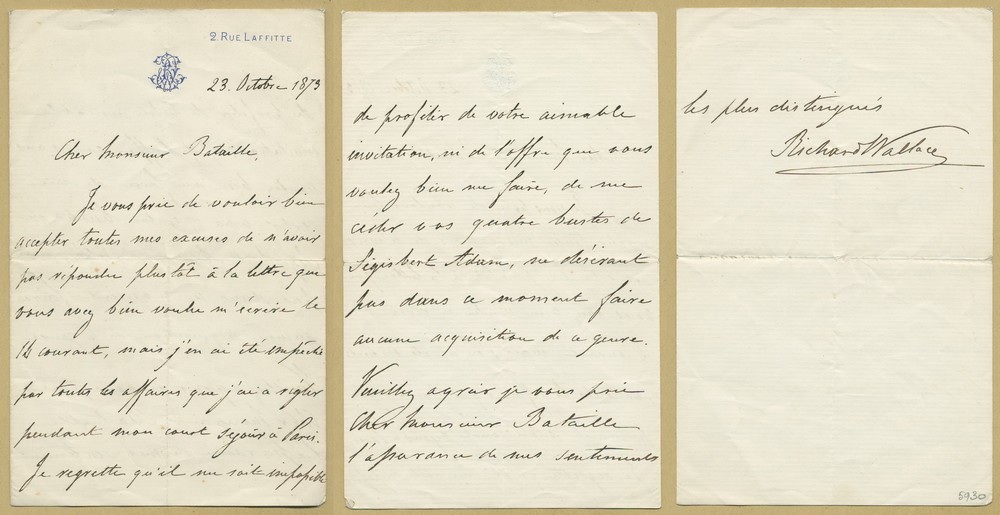 2. RUE LAFFITTE
23. Octobre 1873
Cher Monsieur Bataille,
Je vous prie de vouloir bien
accepter toutes mes excuses de n'avoir
pas répondu plus tôt à la lettre que
vous avez bien voulu m'écrire le
courant, mais j'en ai été empêché
par toutes les affaires que j'ai à régler
pendant mon court séjour à Paris.
Je regrette qu'il me soit impossible
de profiter de votre aimable
invitation, ni de l'offre que vous
voulez bien me faire, de me
céder vos quatre bustes de
Sigisbert Adam, ne désirant
pas dans ce moment faire
aucune acquisition de ce genre.
Veuillez agréer je vous prie
Cher Monsieur Bataille
l'assurance de mes sentiments
les plus distingués
Richard Wallace
5930